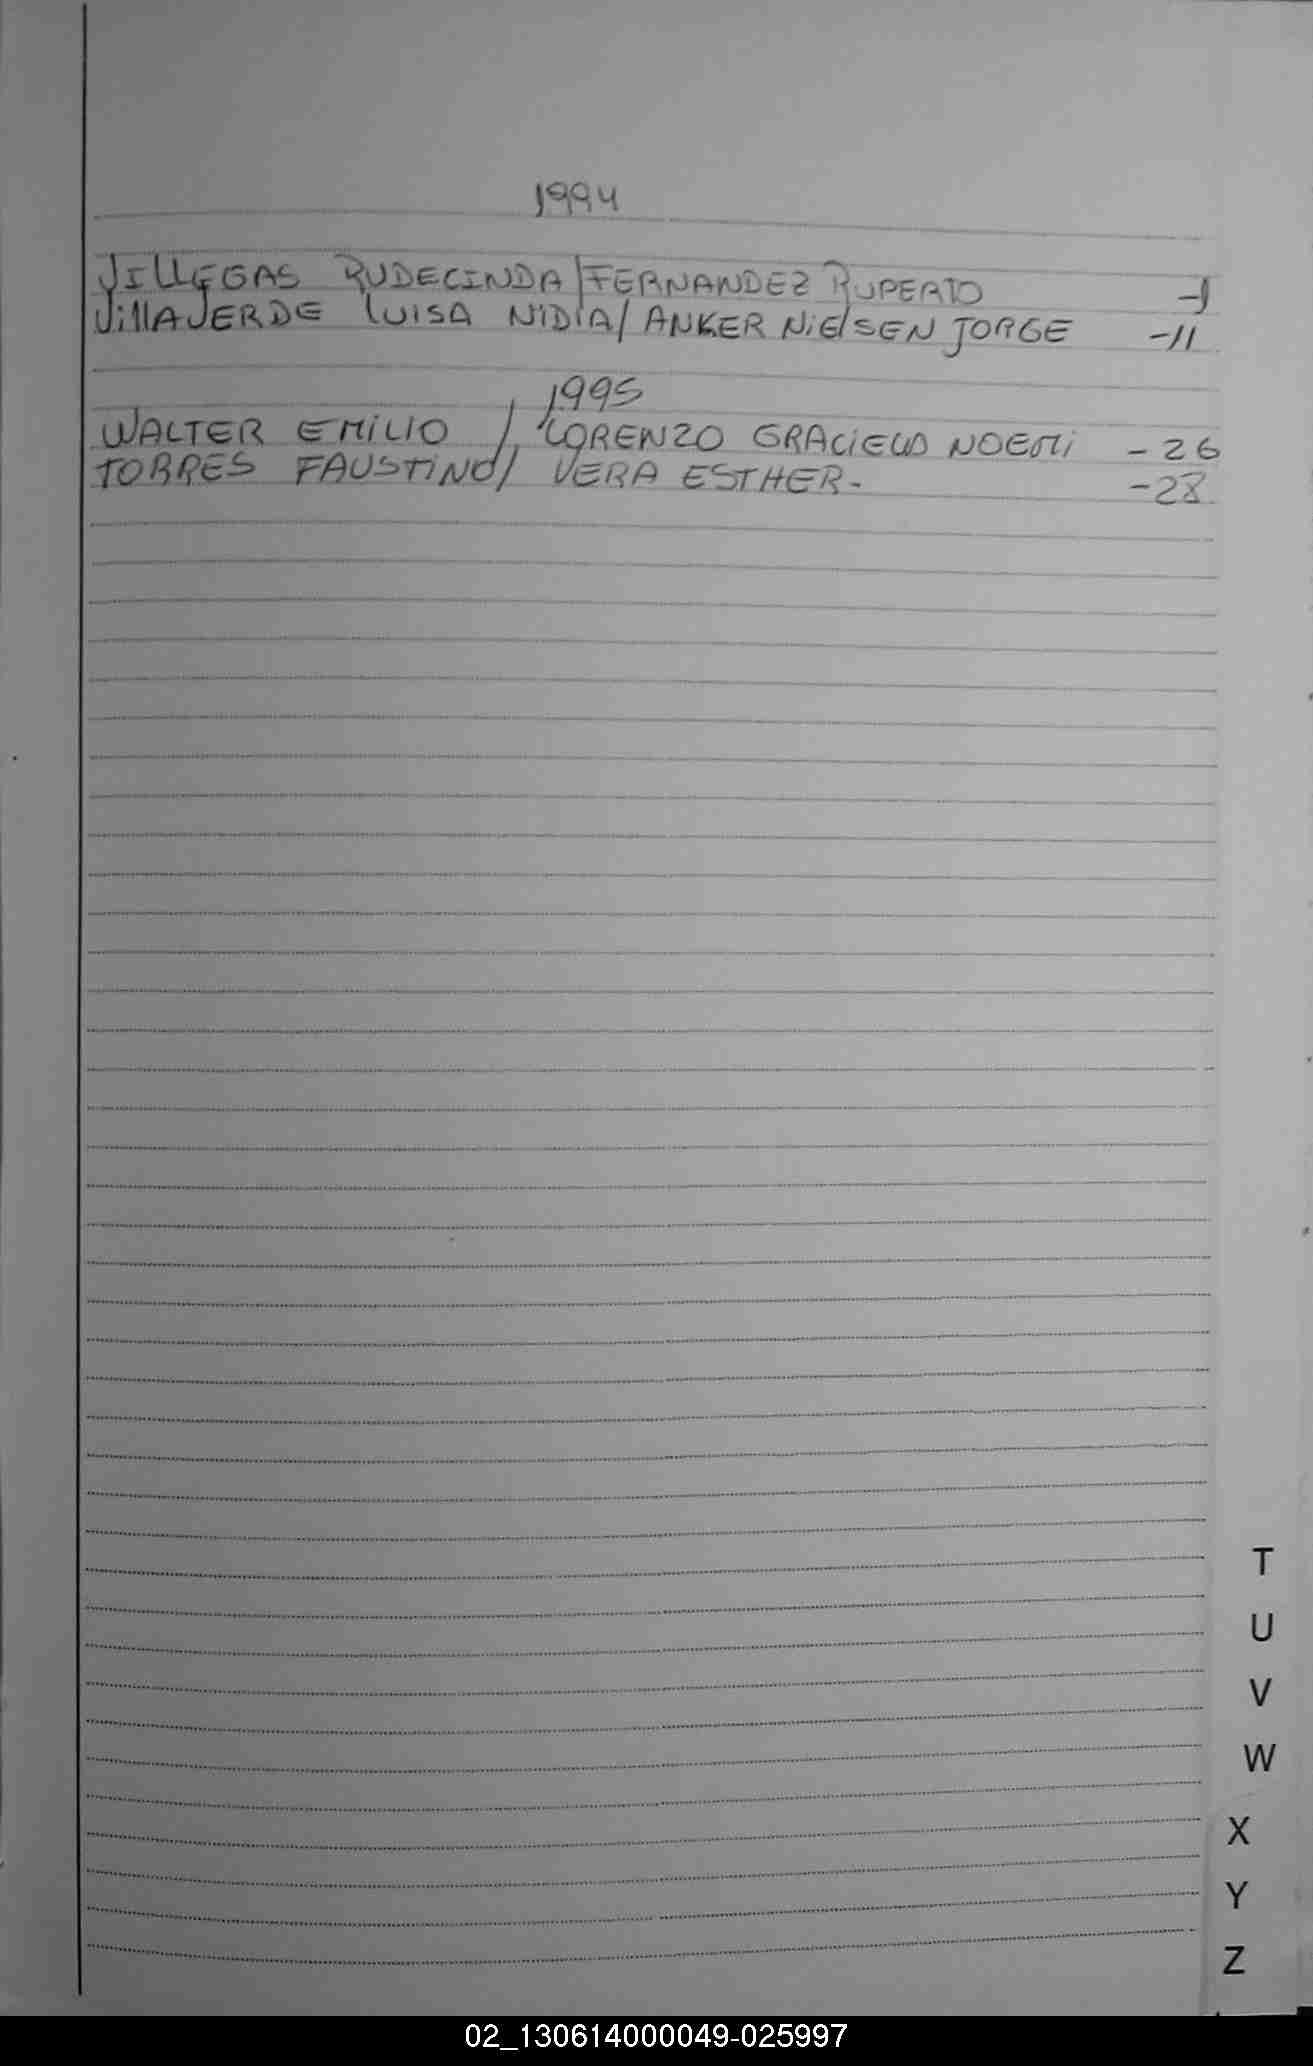 1994
VILLEGAS RUDECINDA/FERNANDEZ RUPERTO -1
VillAVERDE LUISA NIDIA/ANKER NIElSEN JORGE -11
1995
WALTER EMILIO / LORENZO GRACIELA NOEMI - 26
TORRES FAUSTINO/ VERA ESTHER- -28
T
U
V
W
X
Y
Z
02_130614000049-025997